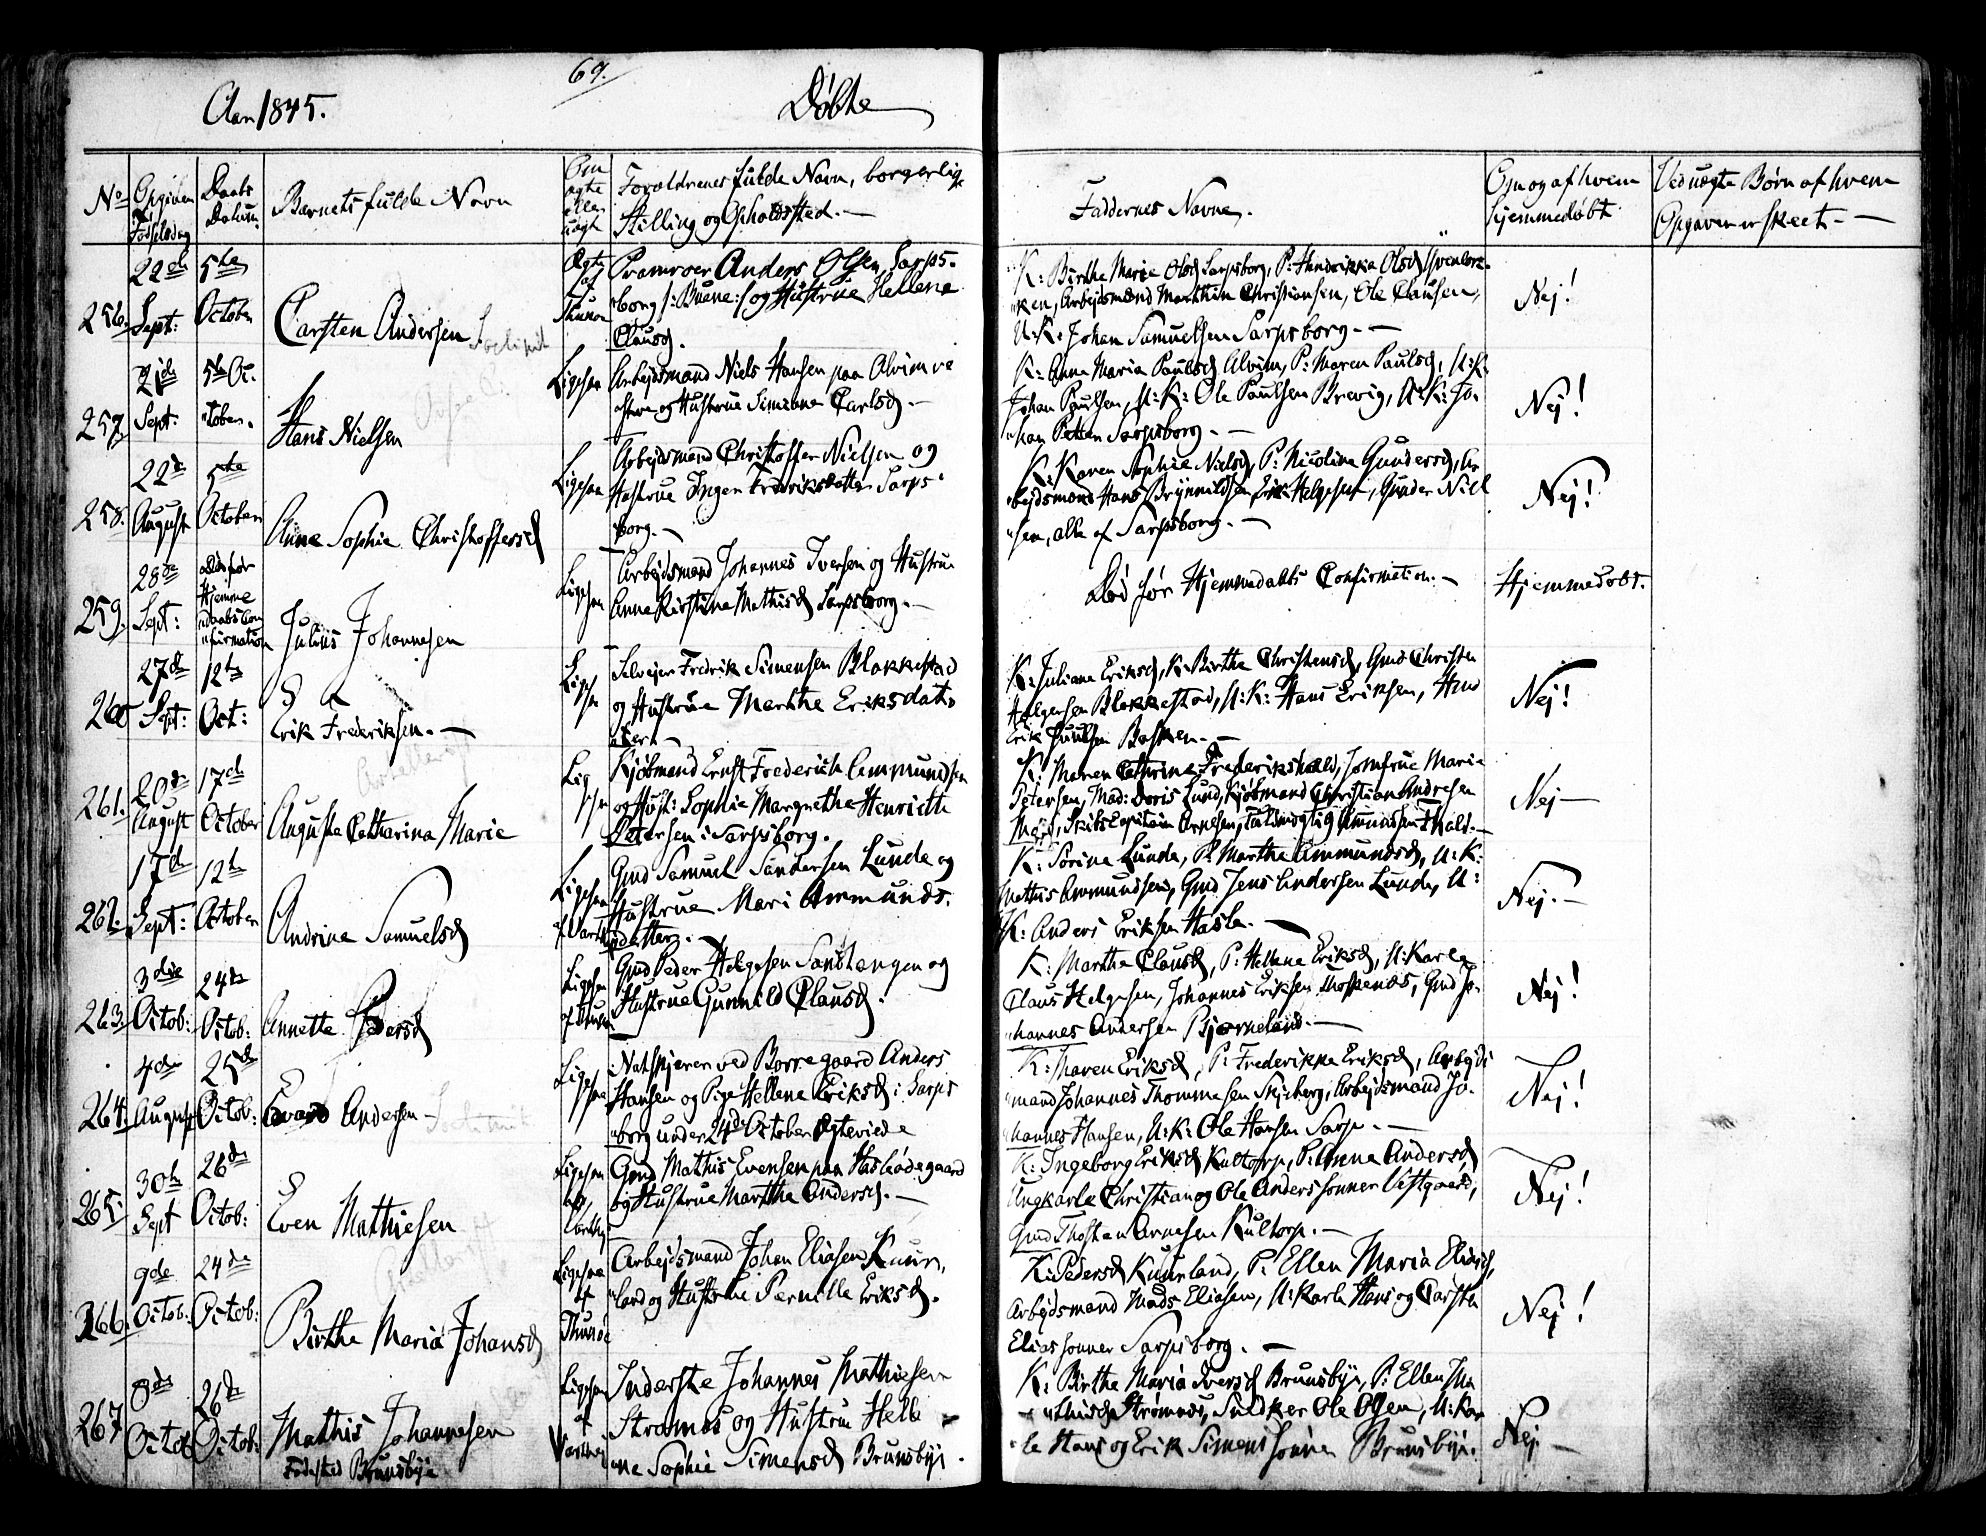 69.
Aar 1845.
Døbte
No
Opgiven Fødselsdag
Daabs Datum.
Barnets fulde Navn
Om ægte eller uægte
Forældrenes fulde Navn, borgerlige
Stilling og Opholdssted. —
Faddernes Navne.
Om og af hvem
hjemmedøbt
Ved uægte Børn af hvem
Opgaven er skeet. —
256. 22de Sept: 5te October
Carsten Andersen
Ægte af Thunøe
Pramroer Anders Olsen, Sarps-
borg /: Buene :/ og Hustrue Hellene
Clausd.
K: Birthe Marie Olsd Sarpsborg, P: Hendrikka Olsd
Arbejdsmænd Marthin Christiansen, Ole Clausen,
U: K: Johan Samuelsen Sarpsborg. —
Nej!
257. 21de Sept: 5te October.
Hans Nielsen
Ligesaa
Arbejdsmand Niels Hansen paa Alvim ve
og Hustrue Simeone Carlsd. —
K: Anne Maria Paulsd Alvim, P: Maren Paulsd, U: K:
Johan Paulsen, U: K: Ole Paulsen Brevig, U: K: Jo-
han Petter Sarpsborg. —
Nej!
258. 22de August 5te October
Anne Sophie Christoffersd
Ligesaa
Arbejdsmand Christoffer Nielsen og
Hustrue Inger Fredriksdatter Sarps-
borg. —
K: Karen Sophie Nielsd, P: Nicoline Gundersd, Ar-
bejdsmænd Hans Brynnildsen, Erik Helgesen, Gunder Niel
sen, alle af Sarpsborg. —
Nej!
259. 28de Sept: døde før Hjemme daabs Con firmation
Julius Johannesen
Ligesaa
Arbejdsmand Johannes Iversen og Hustrue
Anne Kirstine Mathisd Sarpsborg. —
Død før Hjemmedaabs Confirmation. —
Hjemmedøbt.
260 27de Sept: 12te Oct:
Erik Frederiksen. —
Ligesaa
Selvejer Fredrik Simensen Blakkestad
og Hustrue Marthe Eriksdat-
ter. —
K: Juliane Eriksd, K: Birthe Christensd, Gmd Christen
Helgersen Blakkestad, U: K: Hans Eriksen,
Erik Poulsen
Nej!
261. 20de August 17de October
Augusta Catharina Marie
Ligesaa
Kjøbmand Ernst Frederich Ammundsen
og Hust: Sophie Margrethe Henriette
Petersen i Sarpsborg.
K: Maren Cathrine Frederikshald, Jomfrue Marie
Petersen, Mad: Doris Lund, Kjøbmand Christian Andresen
Moss, Skibs Capitain Arnesen,
Nej —
262. 17de Sept: 12te October
Andrine Samuelsd
Ligesaa
Gmd Samuel Sandersen Lunde og
Hustrue Mari Ammunds-
datter. —
K: Sørine Lunde, P: Marthe Ammundsd, U: K:
Mathis Ammundsen, Gmd Jens Andersen Lunde, U:
K: Anders Eriksen Hasle. —
Nej. —
263. 3die Octob: 24de Octob:
Annette Pedersd
Ligesaa
Gmd Peder Helgesen Sandtangen og
Hustrue Gunnild Clausd.
K: Marthe Clausd, P: Hellene Eriksd, U: Karle
Claus Helgesen, Johannes Eriksen Gmd Jo-
hannes Andersen Bjørneland. —
Nej!
264. 4de August 25de Octob:
Edvard Andersen
Ligesaa
Natskjærer ved Borregaard Anders
Hansen og Pige Hellene Eriksd i Sarps
borg under 24de October Ægteviede
K: Maren Eriksd, P: Frederikke Eriksd, Arbejds
mand Johannes Thommesen Skjeberg, Arbejdsmand Jo-
hannes Hansen, U: K: Ole Hansen Sarp. —
Nej!
265. 30te Sept 26de Octob:
Even Mathiesen
Ligesaa
Gmd Mathis Evensen paa
og Hustrue Marthe Andersd. —
K: Ingeborg Eriksd Kultorp, P: Anne Andersd,
Ungkarle Christian og Ole Anders sønner Vestgaard,
Gmd Thosten Arnesen Kultorp. —
Nej!
266. 9de Octob: 24de Octob:
Birthe Maria Johansd
Ligesaa af Thunøe
Arbejdsmand Johan Eliasen Kuur-
land og Hustrue Pernille Eriksd.
K: Pedersd Kuurland, P: Ellen Maria Eliasd,
Arbejdsmand Mads Eliasen, U: Karle Hans og Carsten
Elias sønner Sarpsborg. —
Nej!
267 8de Octob 26de Octob:
Mathis Johannesen
Fødested Brunsbye
Ligesaa af
Inderste Johannes Mathiesen
Strømnes og Hustrue Helle-
ne Sophie Simensd Brunsbye.
K: Birthe Maria Iversd Brunsbye, P: Ellen Ma
thisd Strømnes, Snedker Ole Olsen, U: Kar-
le Hans og Erik Simens sønner Brunsbye.
Nej. —